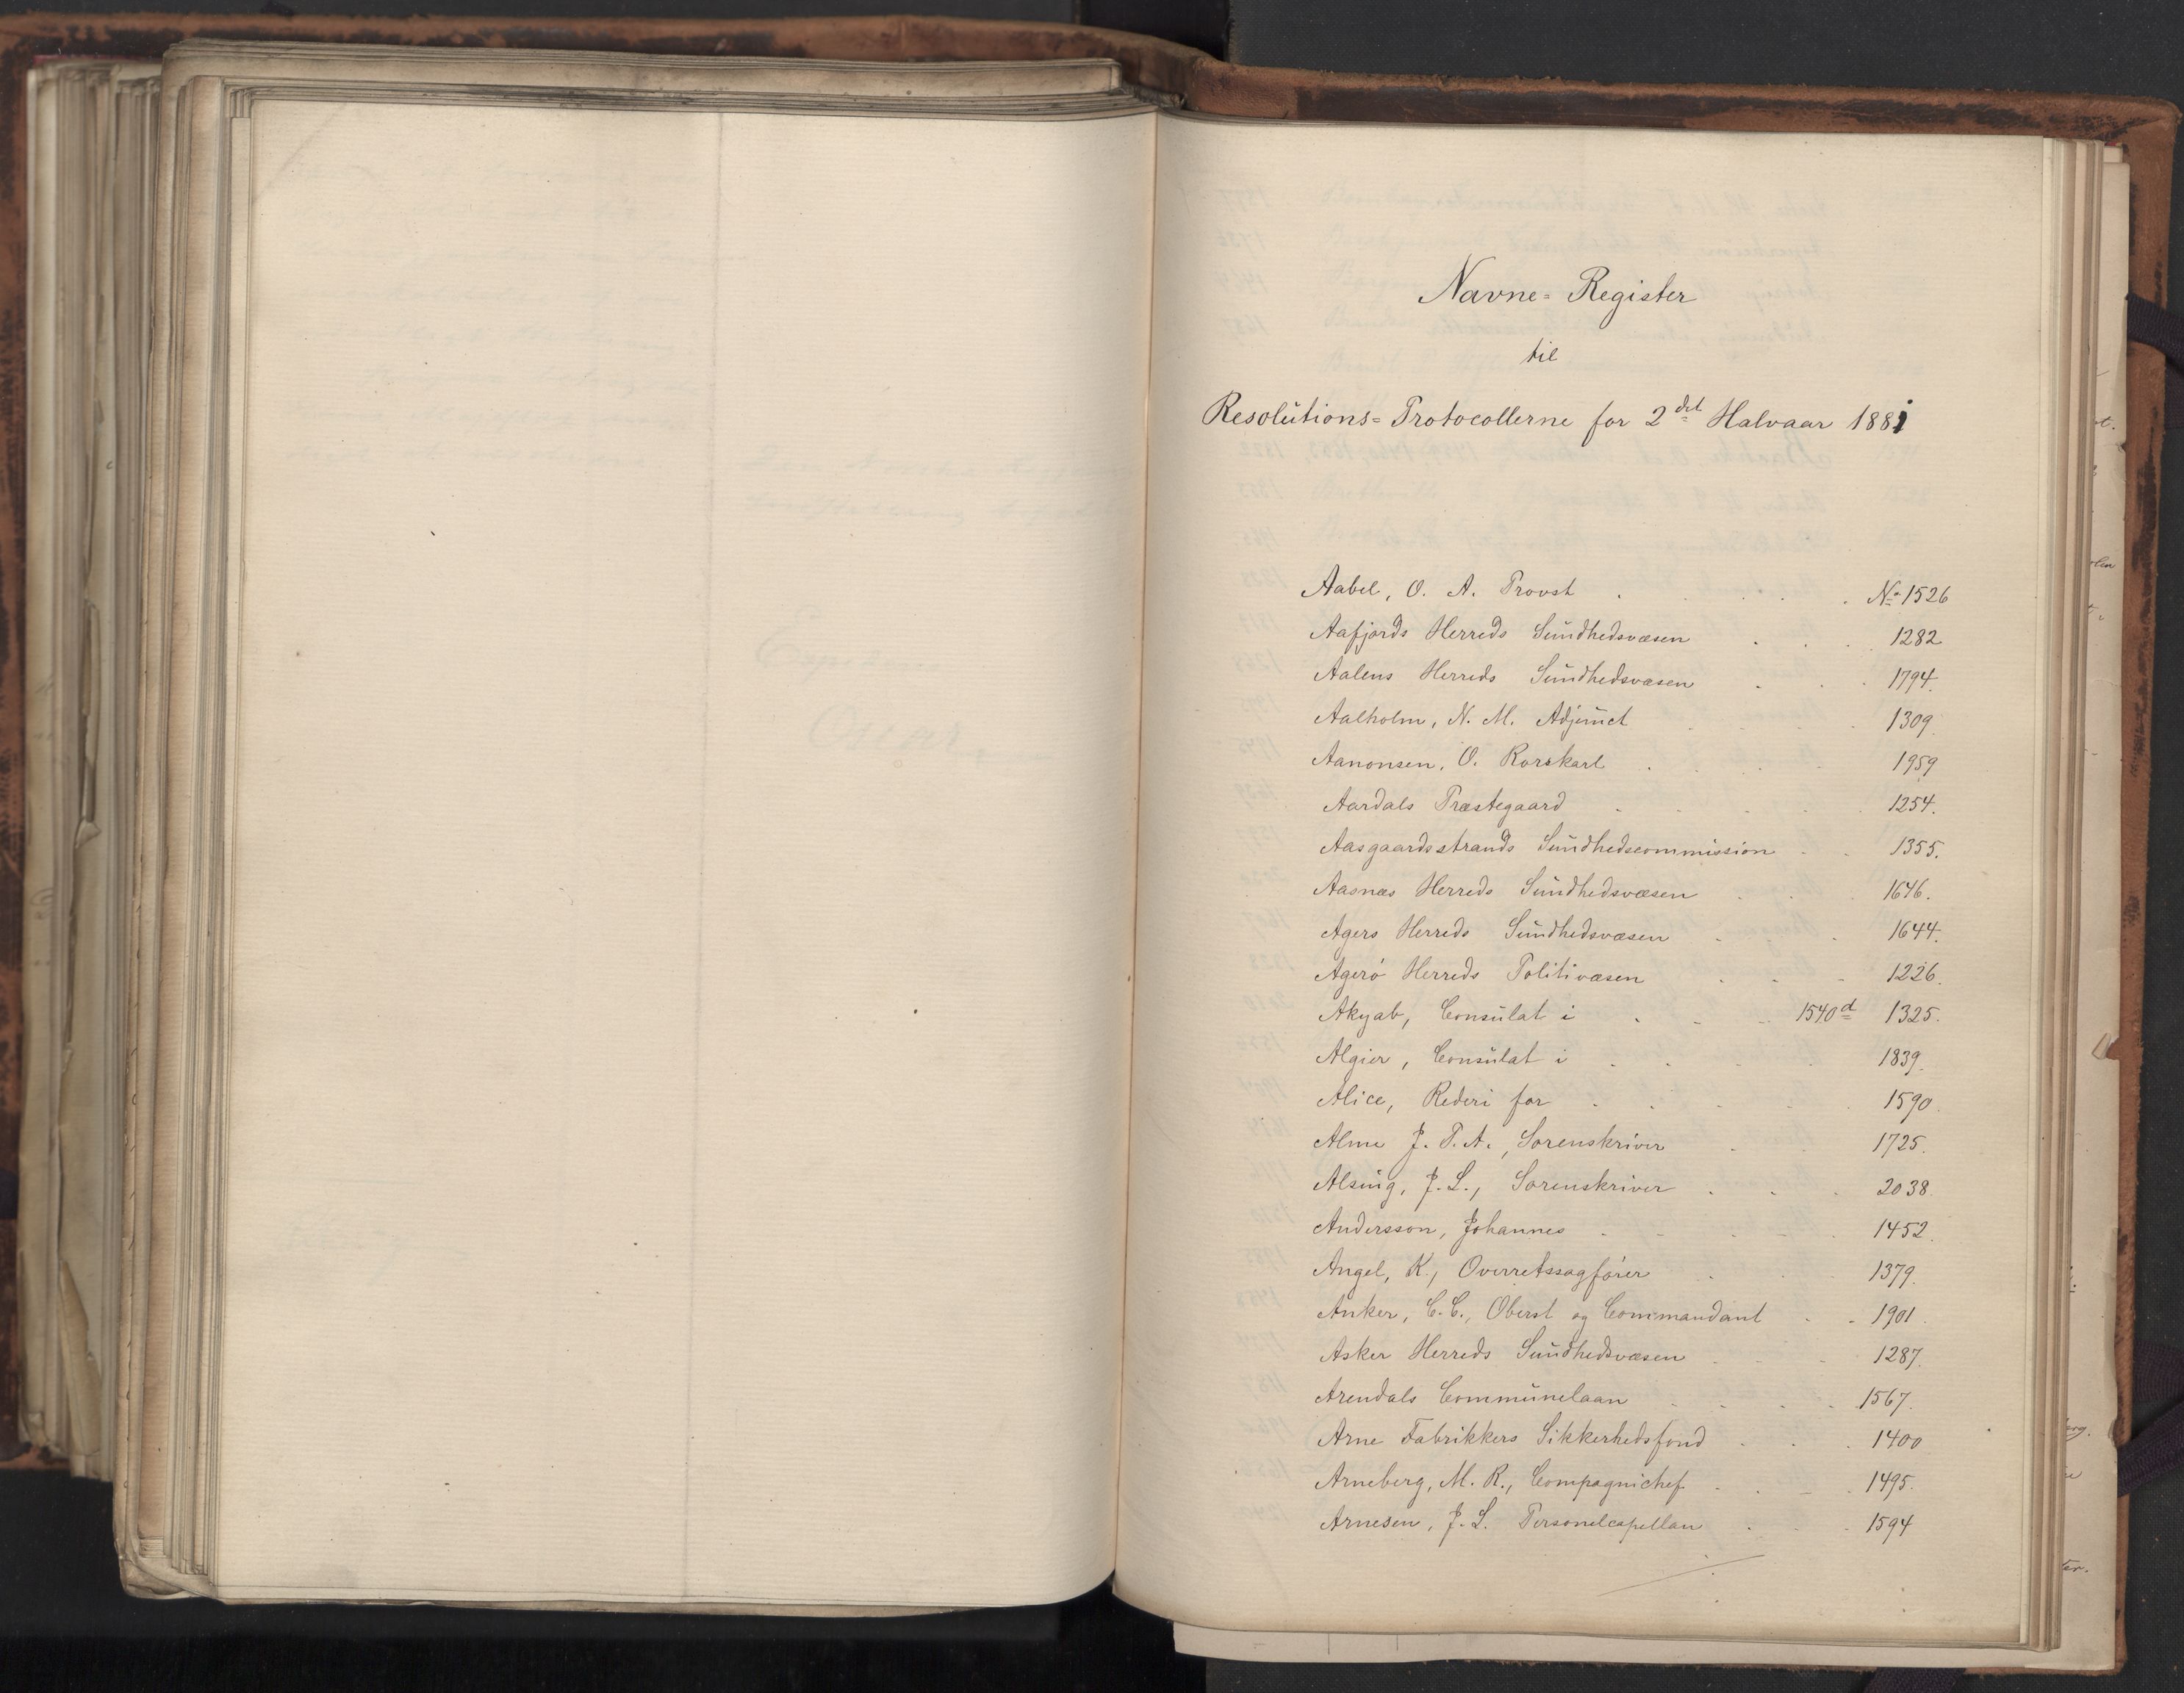 Navne-Register
til
Resolutions-Protocollerne for 2det Halvaar 1881
Aabel, O. A. Provst No 1526
Aafjords Herreds Sundhedsvæsen 1282
Aalens Herreds Sundhedsvæsen 1794.
Aalholm, N. M. Adjunct 1309
Aanonsen, O. Rorskarl 1959
Aardals Præstegaard 1254.
Aasgaardsstrands Sundhedscommission 1355.
Aasnæs Herreds Sundhedsvæsen 1646.
Agers Herreds Sundhedsvæsen 1644.
Agerø Herreds Politivæsen 1226.
Akyab, Consulat i 1540d 1325.
Algier, Consulat i 1839.
Alice, Rederi for 1590
Alme J. P. A., Sorenskriver 1725.
Alsing, J. L., Sorenskriver 2038
Andersson, Johannes 1452.
Angel, K., Overretssagfører 1379.
Anker, C. C., Oberst og Commandant 1901.
Asker Herreds Sundhedsvæsen 1287.
Arendals Communelaan 1567.
Arne Fabrikkers Sikkerhedsfond 1400
Arneberg, M. R., Compagnichef 1495.
Arnesen, J. L. Personelcapellan 1594